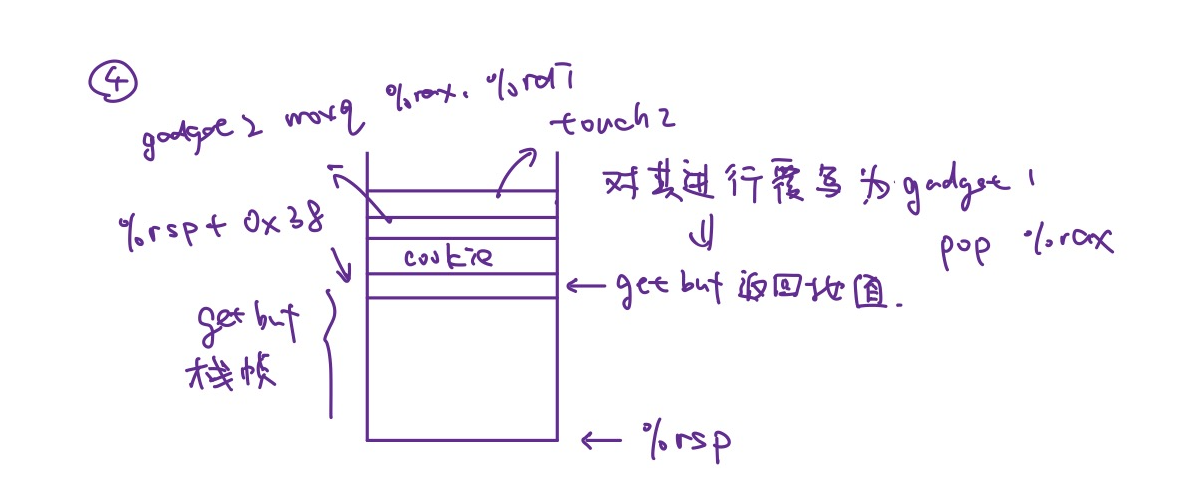 ④
gadget 2 movq %rax, %rdi
touch2
对其进行覆写为gadget 1
pop %rax
%rsp + 0x38
cookie
getbuf 返回地值.
getbuf
栈帧
%rsp